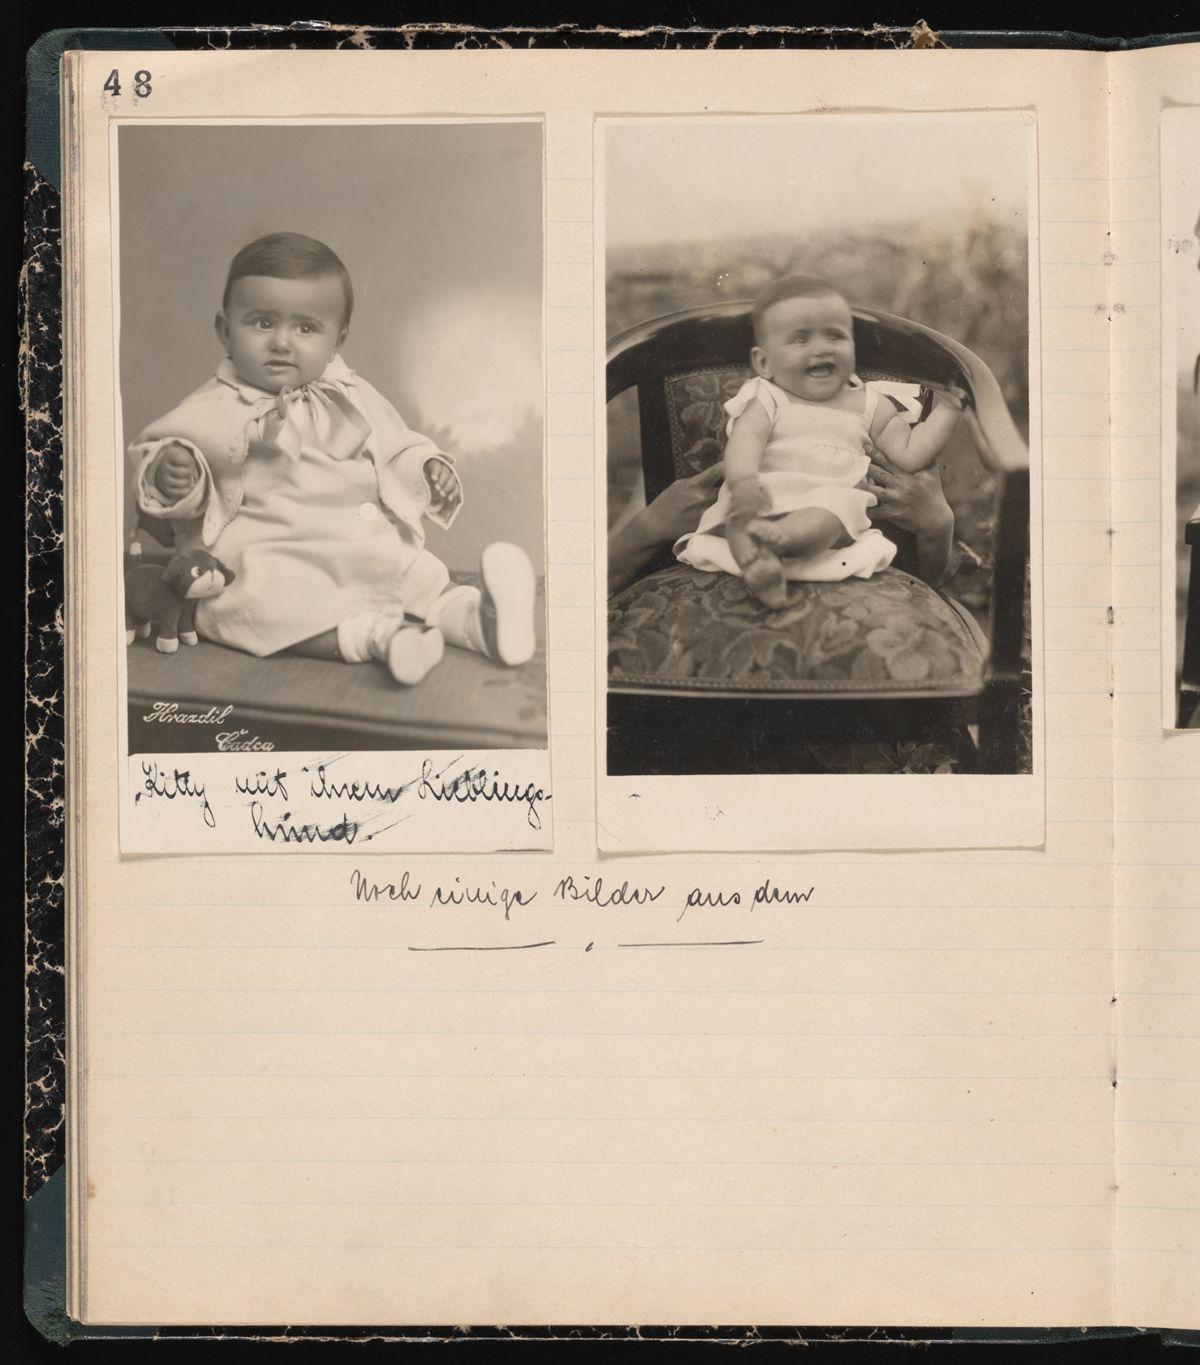 48
Hrazdil
Čadca
Kitty mit ihrem Lieblings-
hund.
Noch einige Bilder aus dem